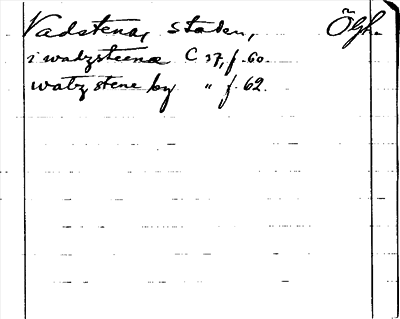 Vadstena, staden, Ögh.
i wadzsteena C 37, f. 60.
watz stene by " f. 62.